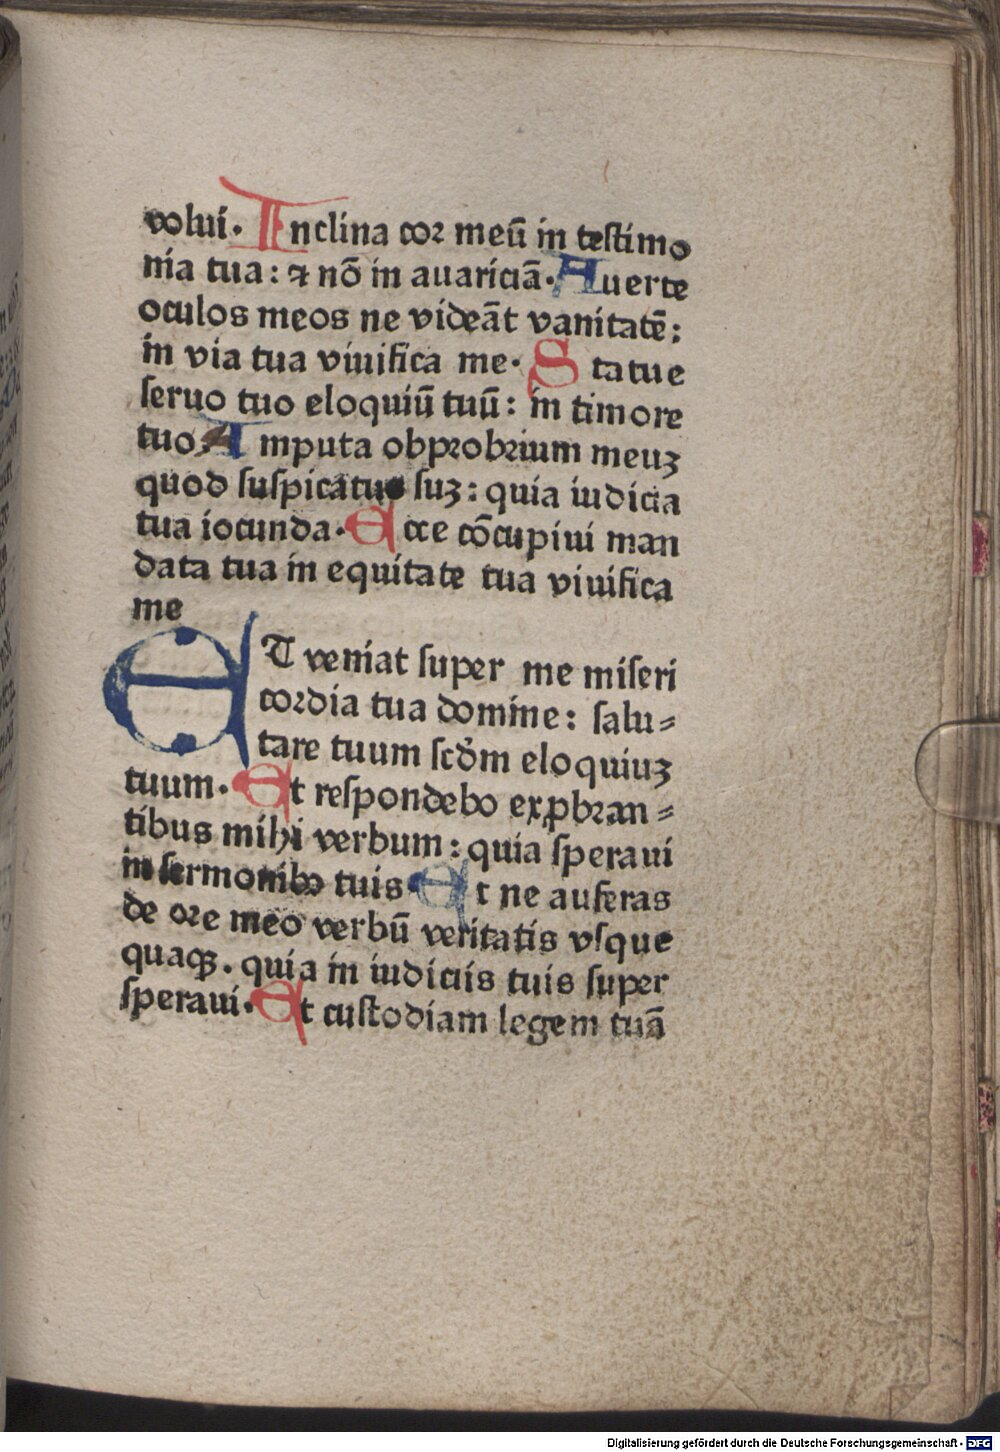 volui. Inclina cor meū in testimo
nia tua: ⁊ nō in auariciā. Auerte
oculos meos ne videāt vanitatē:
in via tua viuifica me. Statue
seruo tuo eloquiū tuū: in timore
tuo. Amputa obprobrium meuꝫ
quod suspicatus suꝫ: quia iudicia
tua iocunda. Ecce cōcupiui man
data tua in equitate tua viuifica
me
ET veniat super me miseri
cordia tua domine: salu⸗
tare tuum scd̄m eloquiuꝫ
tuum. Et respondebo exꝓbran⸗
tibus mihi verbum: quia speraui
in sermonibꝰ tuis. Et ne auferas
de ore meo verbū veritatis vsque
quaqꝫ. quia in iudiciis tuis super
speraui. Et custodiam legem tuā
Digitalisierung gefördert durch die Deutsche Forschungsgemeinschaft - DFG